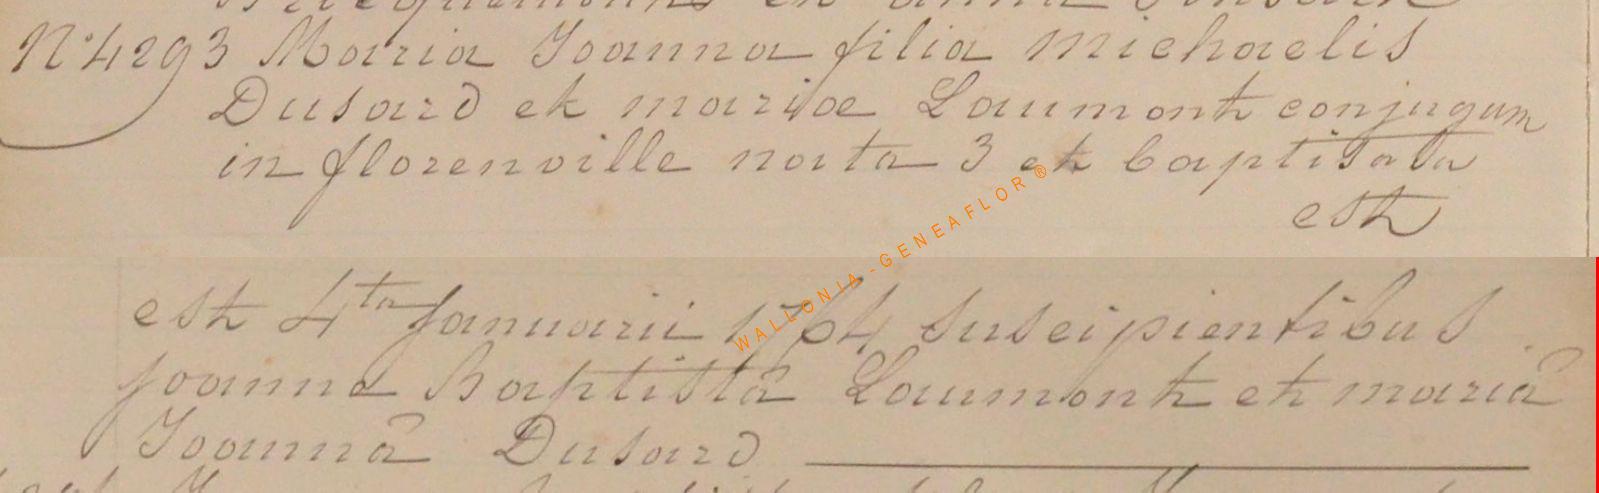 N° 4293 Maria Joanna filia Michaelis
Dusard et mariae Laumont conjugum
in florenville nata 3 et baptisata
est
est 4ta Januarii 1764 suscipientibus
joanne Baptistâ Laumont et mariâ
Joannâ Dusard
WALLONIA-GENEAFLOR®